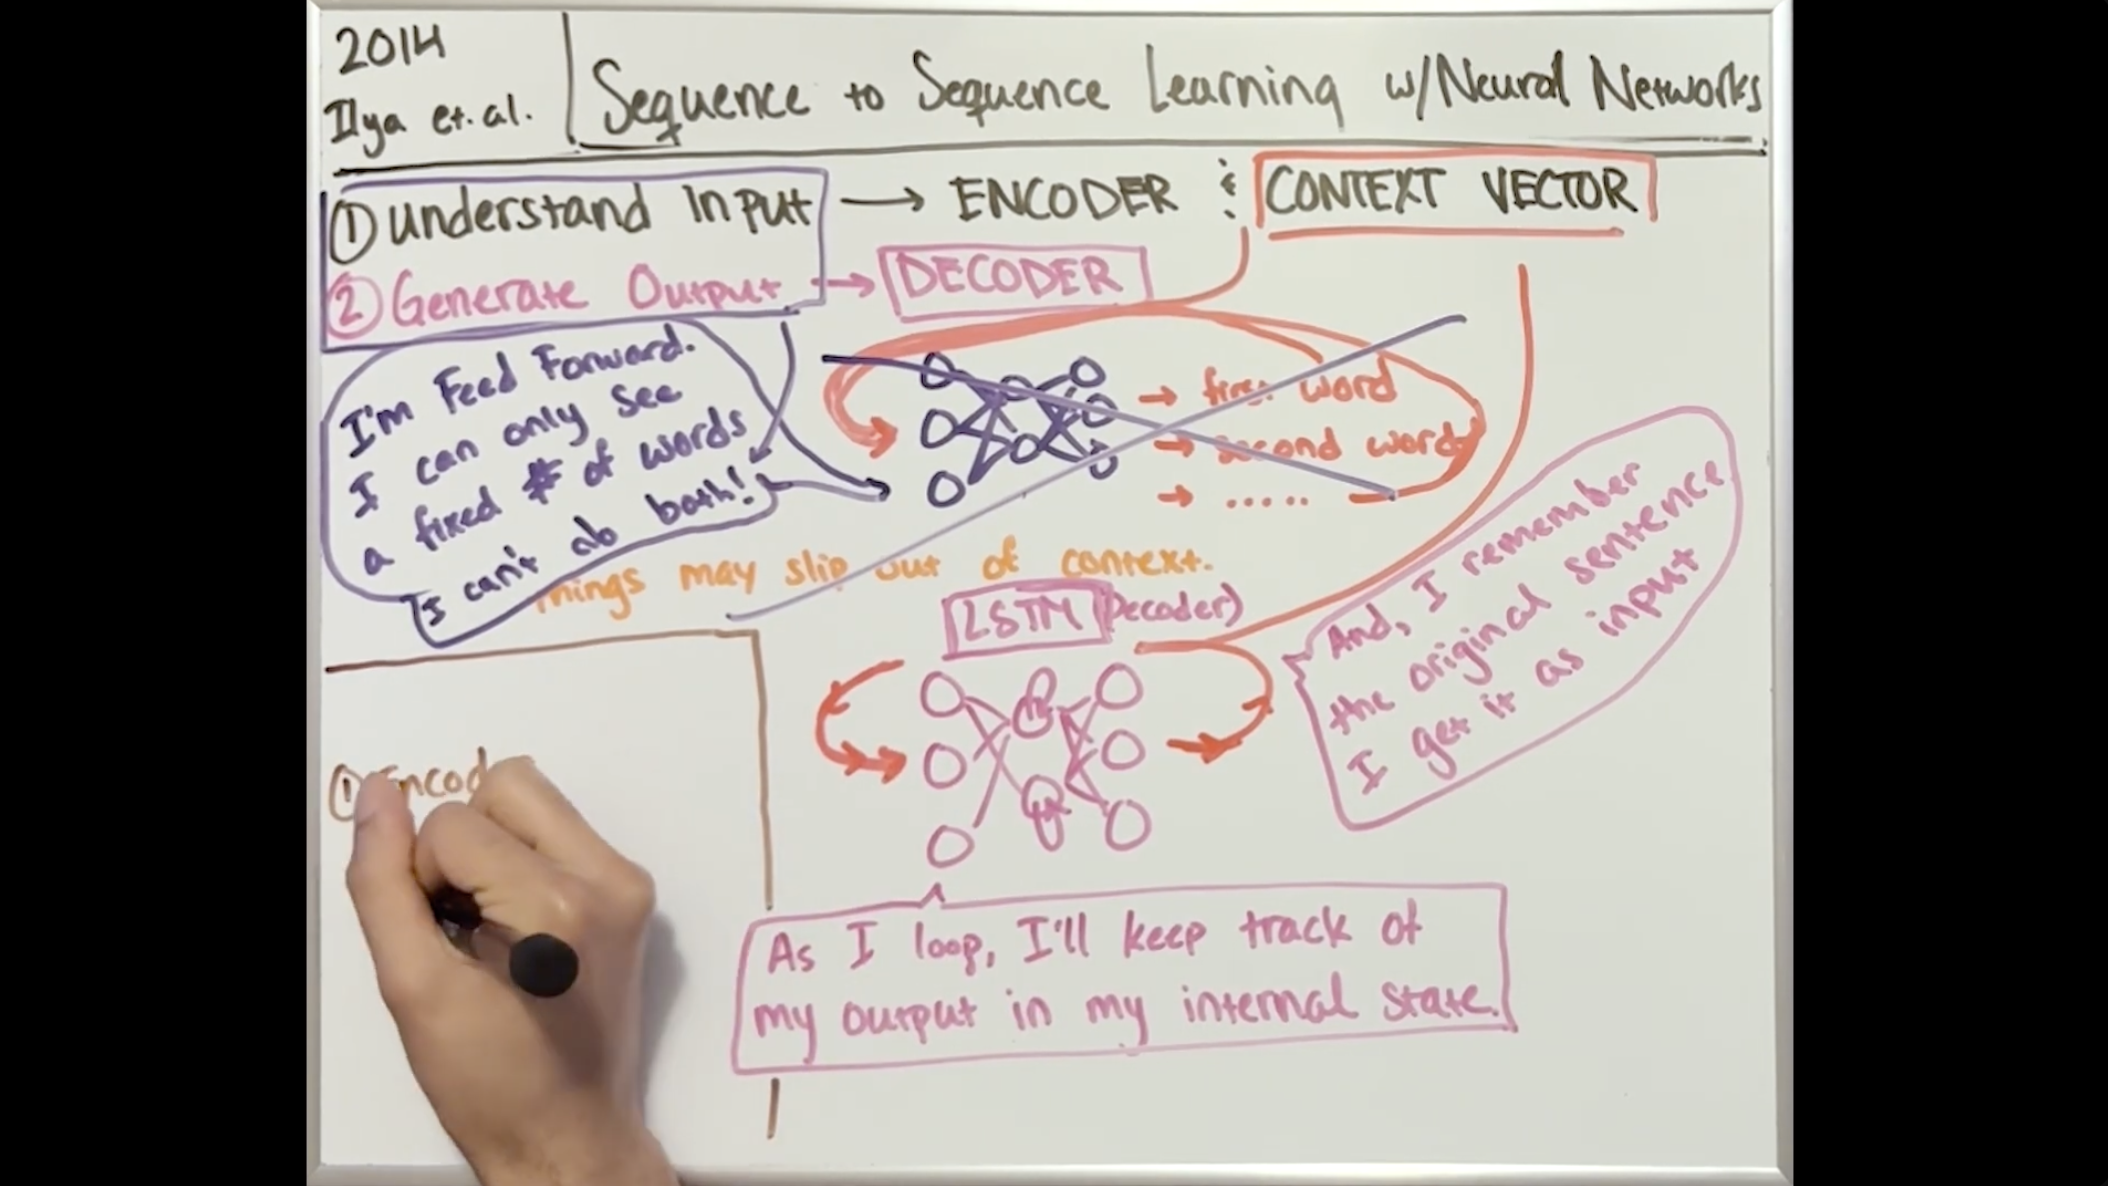 2014
Ilya et. al.
Sequence to Sequence Learning w/Neural Networks
① Understand Input → ENCODER & CONTEXT VECTOR
② Generate Output → DECODER
I'm Feed Forward.
I can only see
a fixed # of words
I can't do both!
→ first word
→ second word
→ .....
things may slip out of context.
LSTM (Decoder)
And, I remember
the original sentence
I get it as input
① Encod
As I loop, I'll keep track of
my output in my internal state.